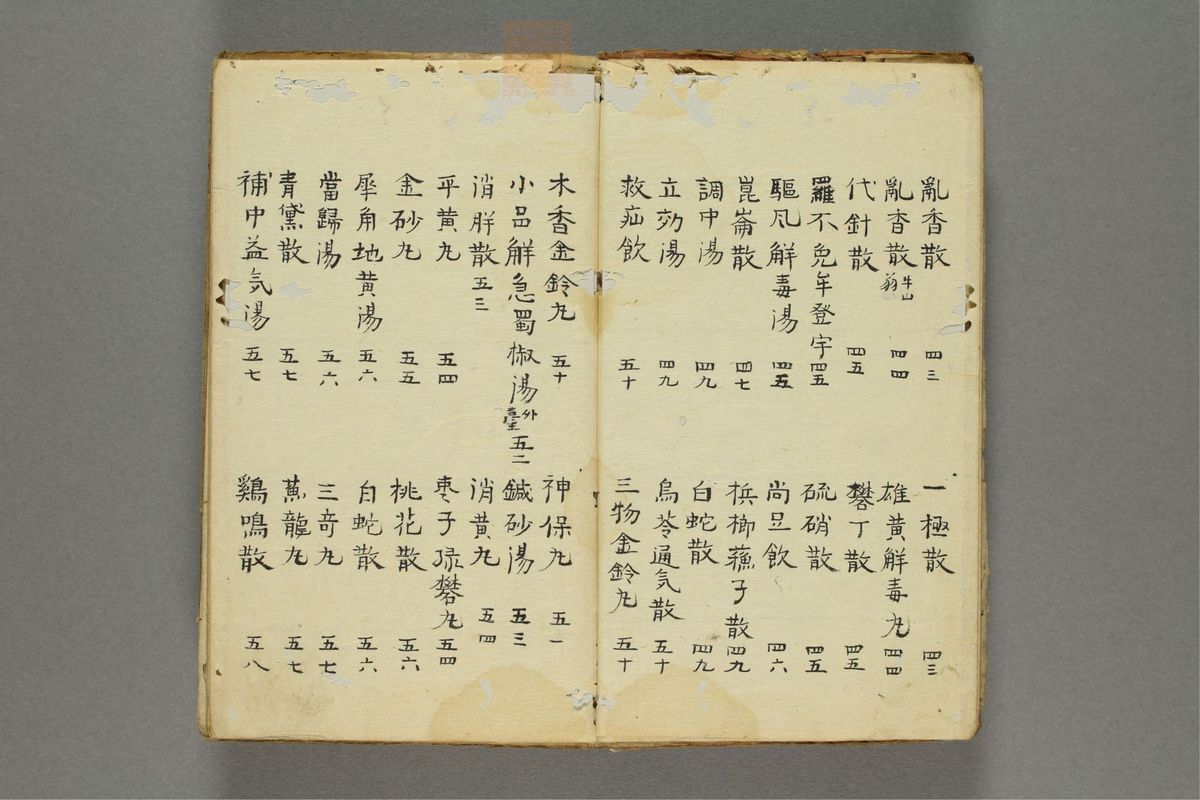 亂香散 四三
亂香散 牛山翁 四四
代針散 四五
羅不免牟登宇 四五
驅風解毒湯 四五
崑崙散 四七
調中湯 四九
立効湯 四九
救疝飲 五十
一極散 四三
雄黃解毒丸 四四
礬丁散 四五
硫硝散 四五
尚豆飲 四六
梹榔蘓子散 四九
白蛇散 四九
烏苓通気散 五十
三物金鈴丸 五十
木香金鈴丸 五十
小品解急蜀椒湯 外臺 五二
消胖散 五三
平黄丸 五四
金砂丸 五五
犀角地黄湯 五六
當歸湯 五六
青黛散 五七
補中益気湯 五七
神保丸 五一
鍼砂湯 五三
消黄丸 五四
枣子緑礬丸 五四
桃花散 五六
白蛇散 五六
三竒丸 五七
蕉龍丸 五七
鷄鳴散 五八